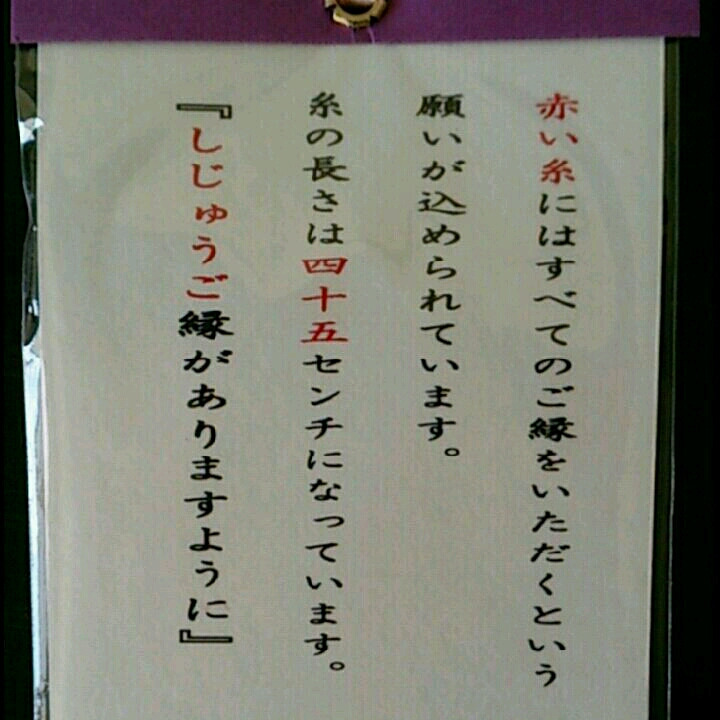 赤い糸にはすべてのご縁をいただくという
願いが込められています。
糸の長さは四十五センチになっています。
『しじゅうご縁がありますように』